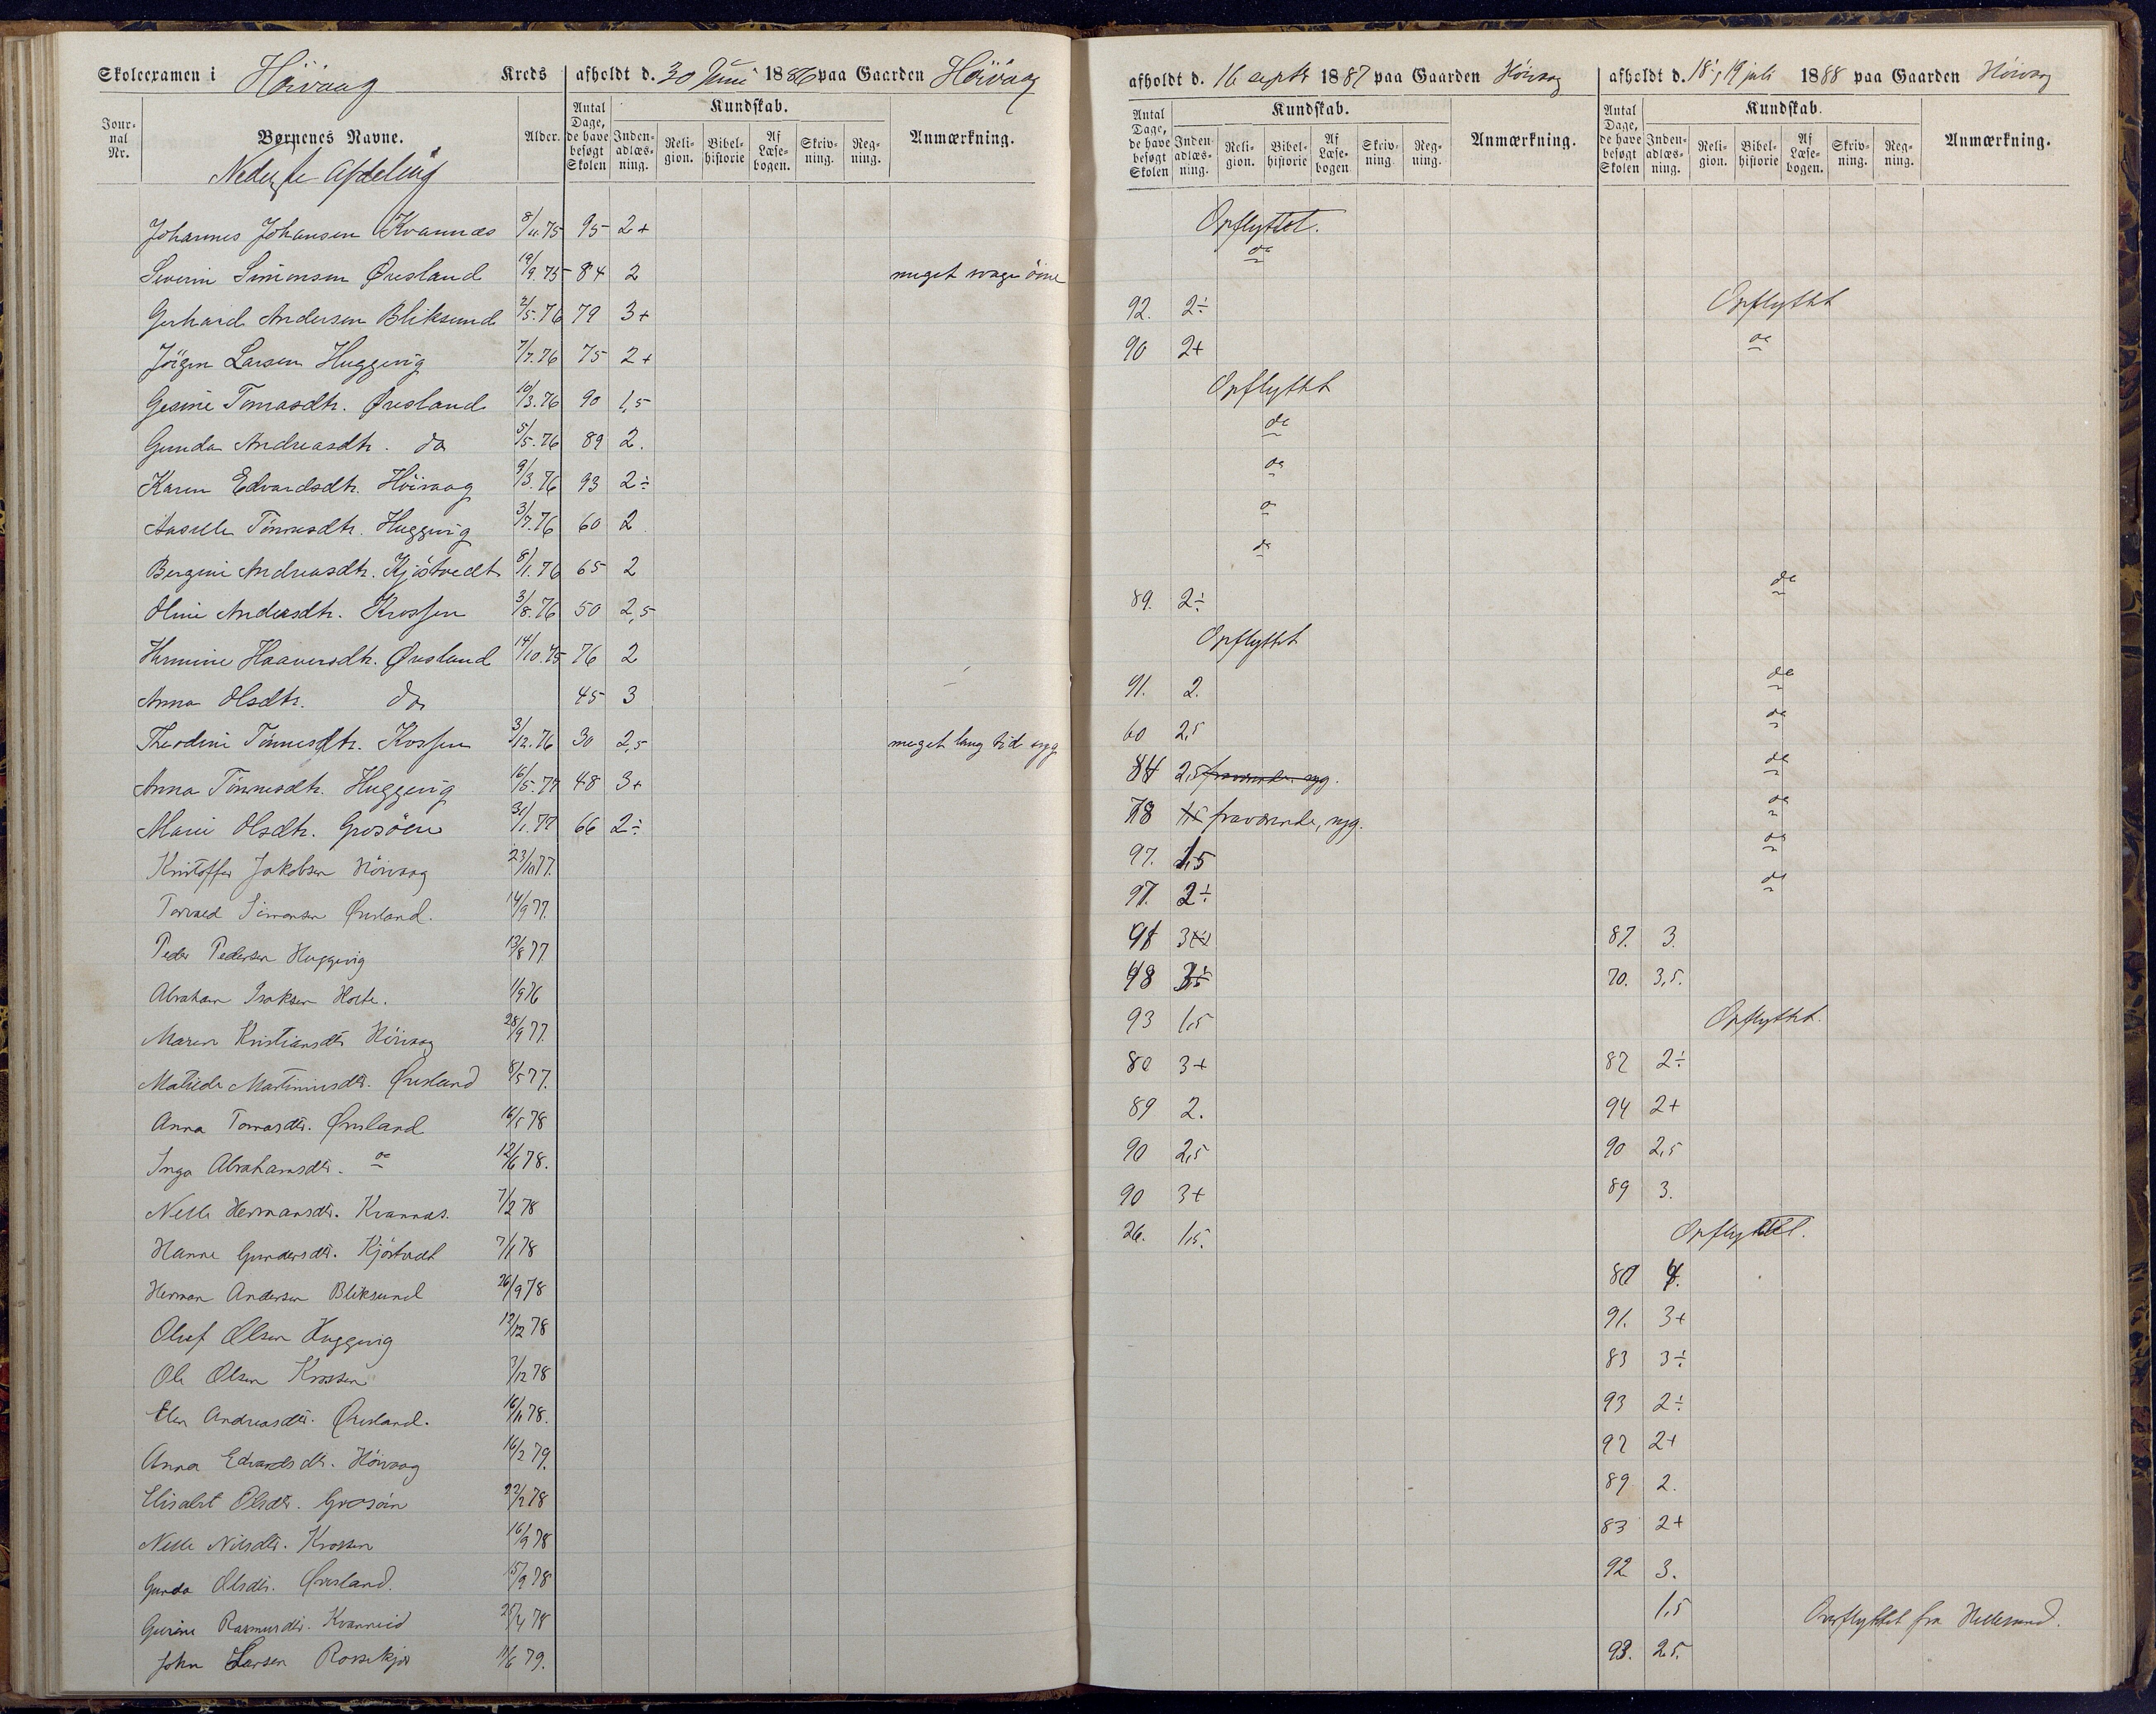 Skoleexamen i Høivaag Kreds afholdt d. 30 Juni 1886 paa Gaarden Høivaag afholdt d. 16 septr 1887 paa Gaarden Høivaag afholdt d. 18, 19 juli 1888 paa Gaarden Høivaag
Journal Nr. Børnenes Navne. Alder. Antal Dage, de have besøgt Skolen Kundskab. Indenadlæsning. Religion. Bibelhistorie Af Læsebogen. Skrivning. Regning. Anmærkning. Antal Dage, de have besøgt Skolen Kundskab. Indenadlæsning. Religion. Bibelhistorie Af Læsebogen Skrivning. Regning. Anmærkning. Antal Dage, de have besøgt Skolen Kundskab. Indenadlæsning. Religion. Bibelhistorie Af Læsebogen. Skrivning. Regning. Anmærkning.
Nederste Afdeling
Johannes Johansen Kvannes 8/11.75 95 2+ Opflyttet.
Severin Simonsen Øresland 19/9.75 84 2 meget svage øine do
Gerhard Andersen Bliksund 2/5.76 79 3+ 92. 2÷ Opflyttet
Jörgen Larsen Huggevig 7/7.76 75 2+ 90 2+ do
Gesine Tomasdtr. Øresland 10/3.76 90 1,5 Opflyttet
Gunda Andreasdtr. do 5/5.76 89 2. do
Karen Edvardsdtr. Høivaag 9/3.76 93 2÷ do
Tönnesdtr. Huggevig 3/7.76 60 2 do
Bergine Andreasdtr. Kjöstvedt 8/1.76 65 2 do
Oline Andersdtr. Krossen 3/8.76 50 2,5 89. 2÷ do
Hermine Haaversdtr. Øresland 14/10.75 76 2 Opflyttet
Anna Olsdtr. do 45 3 91. 2. do
Theodine Tönnesdtr. Krossen 3/12.76 30 2,5 meget lang tid syg 60 2,5 do
Anna Tönnesdtr. Huggevig 16/5.77 48 3+ 84 2,5 fraværende syg. do
Marie Olsdtr. Grosöen 31/1.77 66 2÷ 78 fraværende, syg. do
Kristoffer Jakobsen Höivaag 23/10 77. 97. 1,5 do
Torvald Simonsen Øresland. 14/9 77. 97. 2÷ do
Peder Pedersen Huggevig 13/8 77 91 3 87. 3.
Abraham Isaksen Holte. 1/9 76 48 70. 3,5.
Maren Kristiansdtr Höivaag 28/9 77. 93 1,5 Opflyttet.
Matilde Martiniusdtr. Øresland 8/5 77. 80 3+ 82 2÷
Anna Tomasdtr. Øresland 16/5 78 89 2. 94 2+
Inga Abrahamsdtr. do 12/6 78. 90 2,5 90 2,5
Nelle Hermansdtr. Kvannes. 7/2 78 90 3+ 89 3.
Hanne Gundersdtr. Kjöstvedt 7/1 78 26. 1,5. Opflyttet.
Herman Andersen Bliksund 26/9 78 80 4.
Oluf Olsen Huggevig 12/12 78 91. 3+
Ole Olsen Krossen 3/12 78 83 3÷
Elen Andreasdtr. Øresland. 16/11 78. 93 2÷
Anna Edvardsdtr. Höivaag 16/2 79. 92 2+
Elisabet Olsdtr. Grosöen 22/2 78 89 2.
Nelle Nilsdtr. Krossen 16/9 78 83 2+
Gunda Olsdtr. Øresland. 15/9 78 92 3.
Gurine Rasmusdtr. Kvanneid 25/4 78 1,5 Overflyttet fra Hellesund.
John Larsen Rossekjær 11/6 79. 93. 2,5.